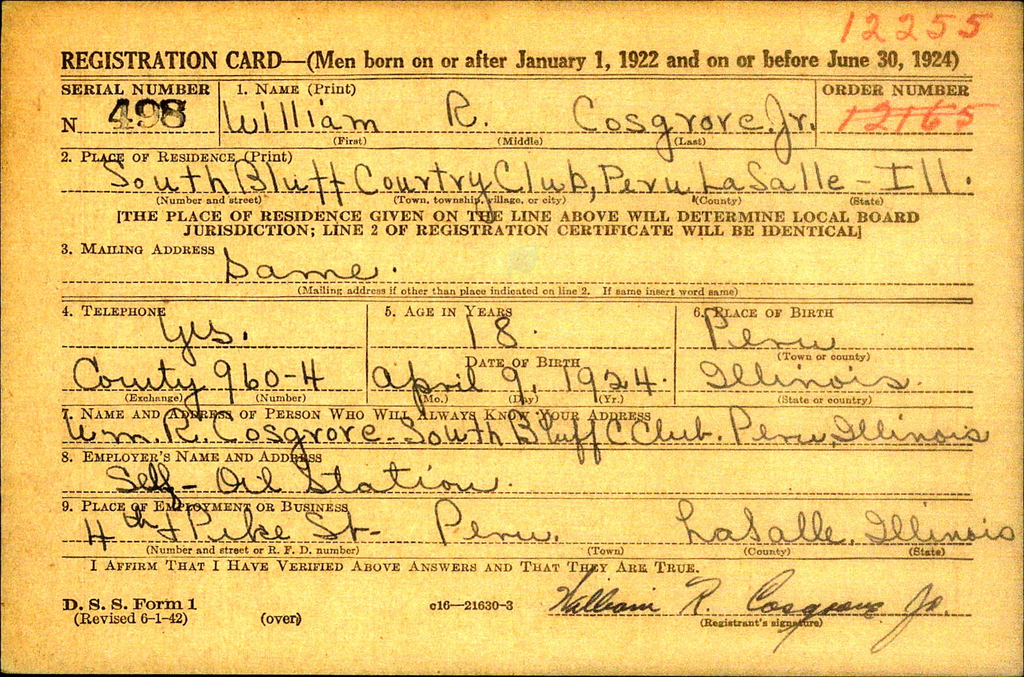 12255
REGISTRATION CARD—(Men born on or after January 1, 1922 and on or before June 30, 1924)
SERIAL NUMBER 1. NAME (Print) ORDER NUMBER
N 498 William R. Cosgrove. Jr. 12165
(First) (Middle) (Last)
2. PLACE OF RESIDENCE (Print)
South Bluff Courtry Club, Peru LaSalle - Ill.
(Number and street) (Town, township, village, or city) (County) (State)
[THE PLACE OF RESIDENCE GIVEN ON THE LINE ABOVE WILL DETERMINE LOCAL BOARD
JURISDICTION; LINE 2 OF REGISTRATION CERTIFICATE WILL BE IDENTICAL]
3. MAILING ADDRESS
Same.
(Mailing address if other than place indicated on line 2. If same insert word same)
4. TELEPHONE 5. AGE IN YEARS 6. PLACE OF BIRTH
Yes. 18. Peru
DATE OF BIRTH (Town or county)
County 960-4 April 9, 1924. Illinois.
(Exchange) (Number) (Mo.) (Day) (Yr.) (State or country)
7. NAME AND ADDRESS OF PERSON WHO WILL ALWAYS KNOW YOUR ADDRESS
Wm. R. Cosgrove - South Bluff C Club. Peru, Illinois
8. EMPLOYER'S NAME AND ADDRESS
Self - Oil Station.
9. PLACE OF EMPLOYMENT OR BUSINESS
4th + Pike St- Peru. LaSalle, Illinois
(Number and street or R. F. D. number) (Town) (County) (State)
I AFFIRM THAT I HAVE VERIFIED ABOVE ANSWERS AND THAT THEY ARE TRUE.
D. S. S. Form 1 c16—21630-3 William R. Cosgrove Jr.
(Revised 6-1-42) (over) (Registrant's signature)